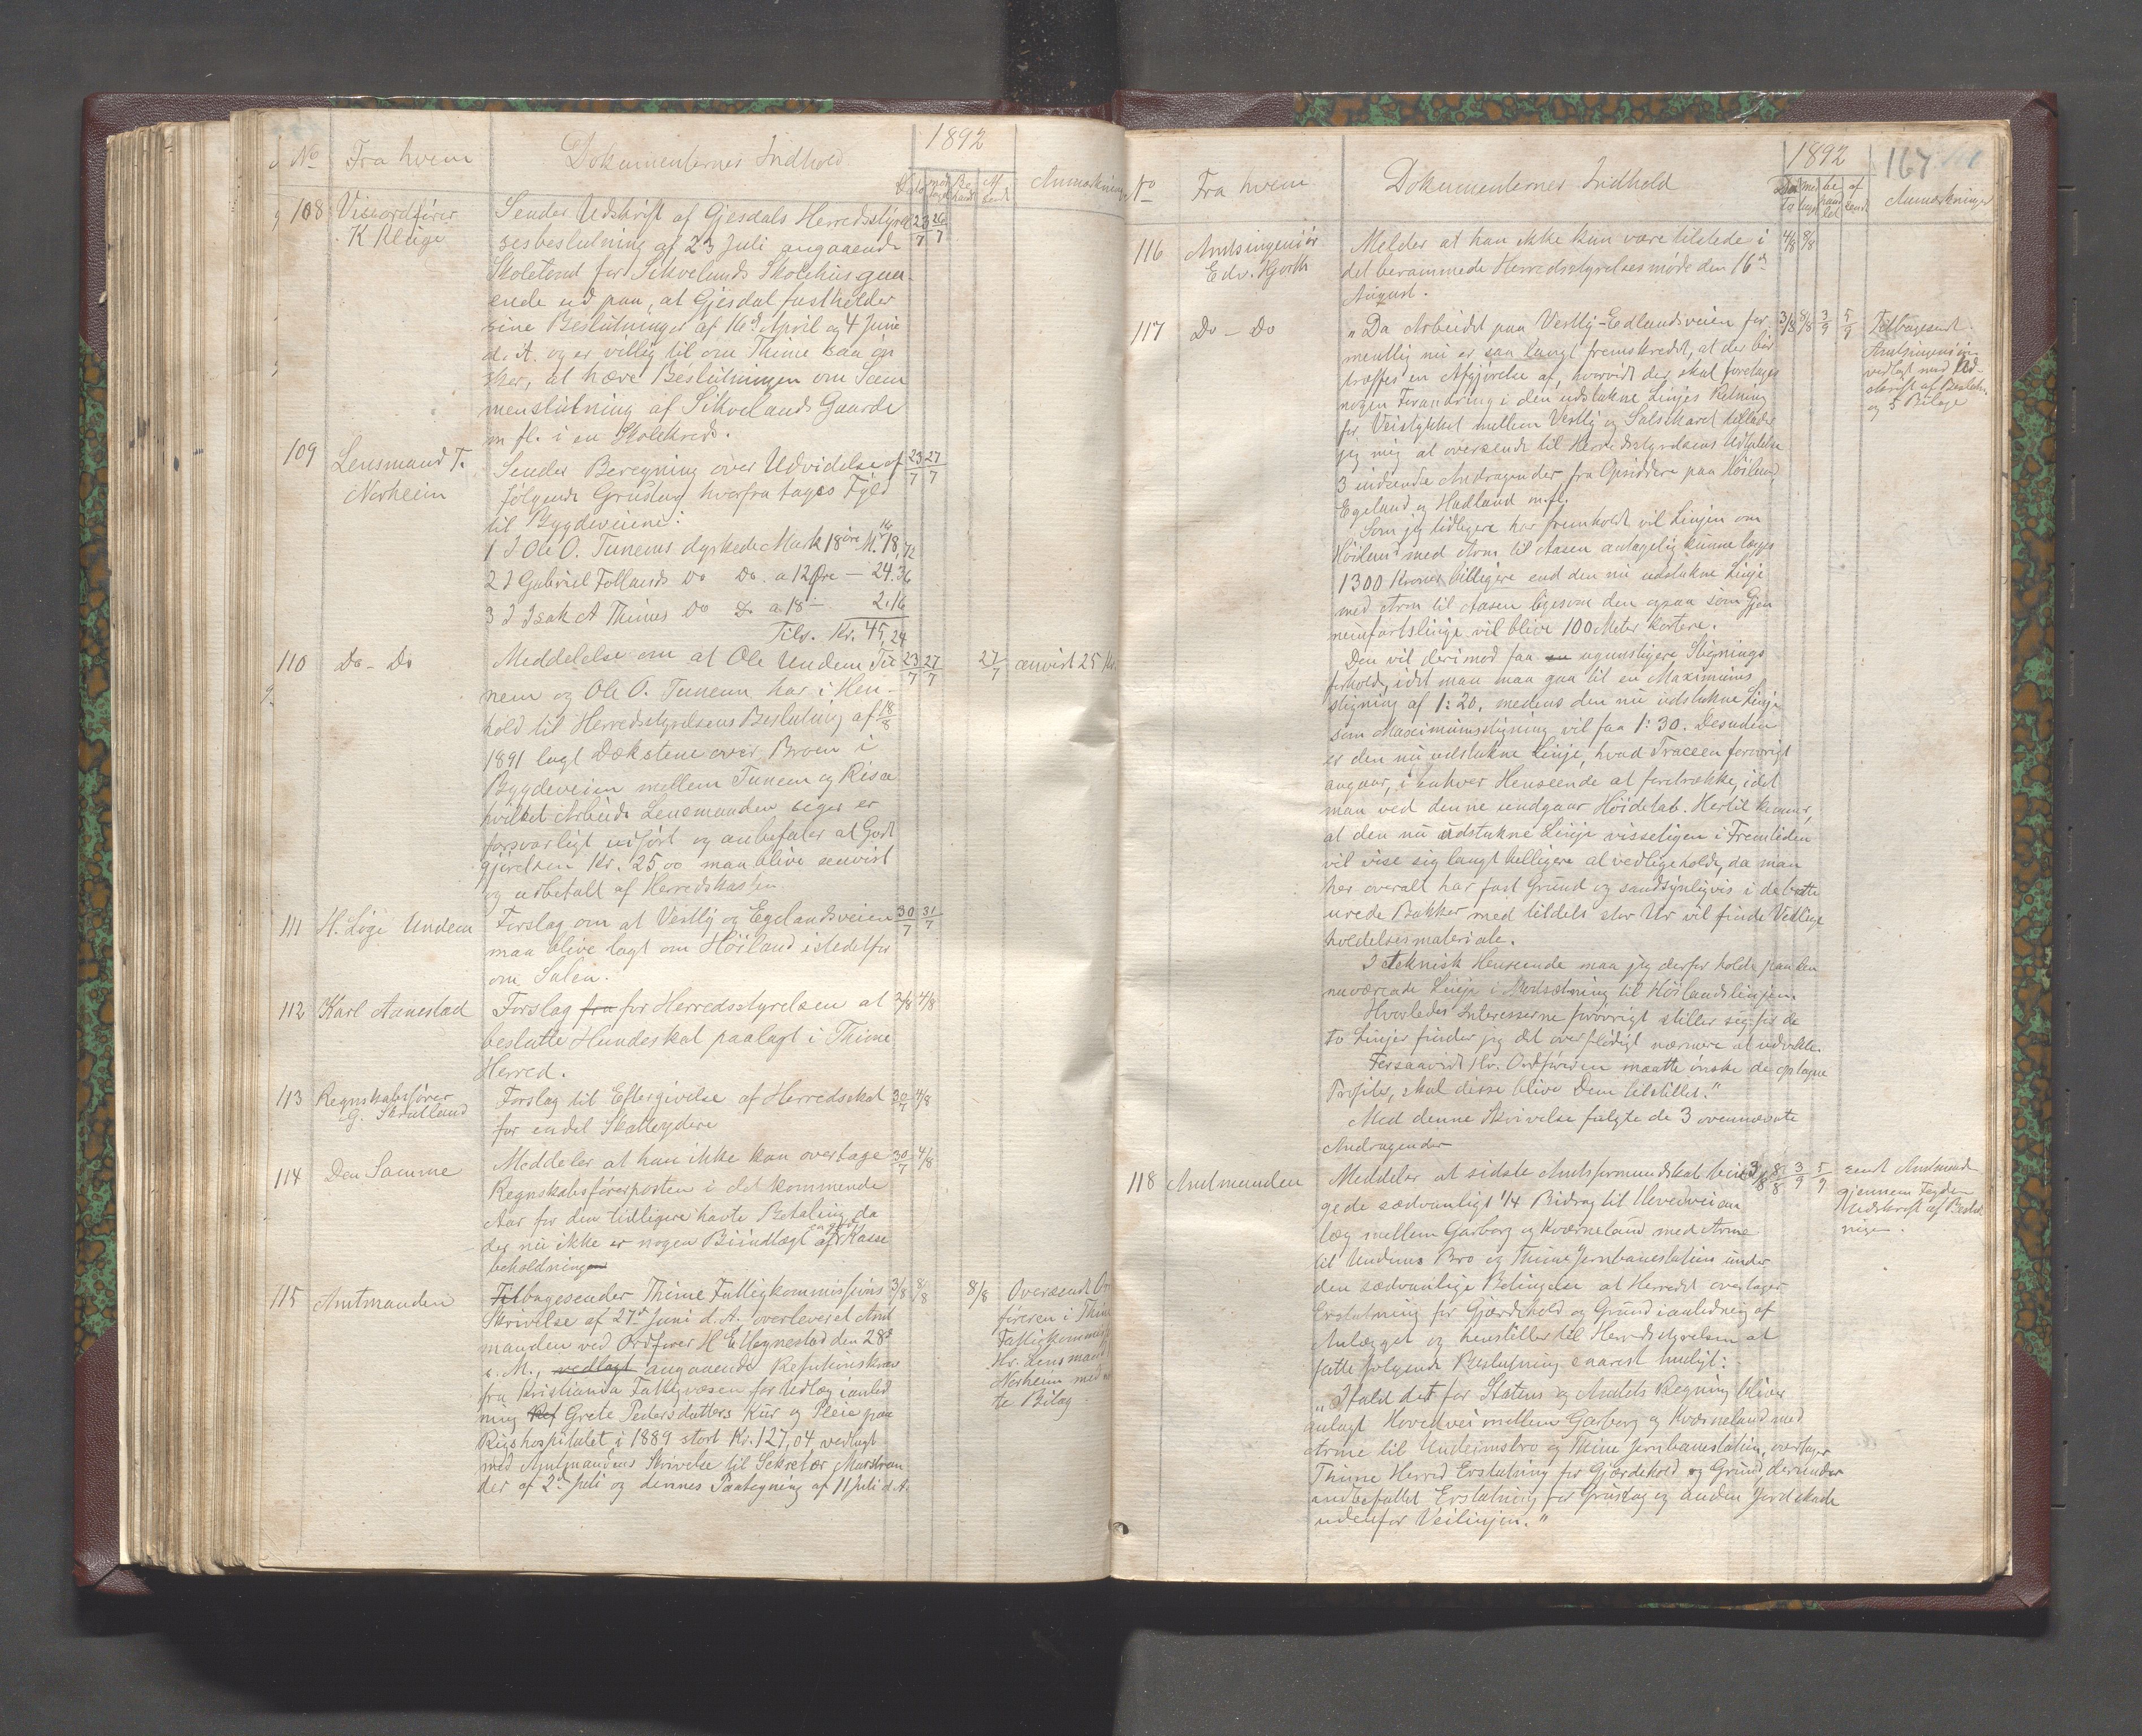 No Fra hvem Dokumenternes Indhold 1892 Anmærkning
108 Viceordfører
K Kluge
Sender Udskrift af Gjesdals Herredsstyrel 23/7 26/7
sesbeslutning af 23 Juli angaaende
Skoletomt for Sikvelunds Skolehus gaa-
ende ud paa, at Gjesdal fastholder
sine Beslutninger af 16de April og 4 Juni
d. A. og er villig til om Thime saa øn
sker, at hæve Beslutningen om Sam
menslutning af Sikvelands Gaarde
m fl. i en Skolekreds.
109 Lensmand T.
Norheim
Sender Beregning over Udvidelse af 23/7 27/7
følgende Grustag hvorfra tages Fyld
til Bygdeveiene:
1 I Ole O. Tunems dyrkede Mark 18 øre Kr. 18,72
2 I Gabriel Follands Do Do. a 12 Øre — 24.36
3 I Isak A Thimes Do Do a 18 — 2.16
Tils. Kr. 45,24
110 Do – Do
Meddelelse om at Ole Undem Tu 23/7 27/7 27/7 anvist 25 Kr.
nem og Ole O. Tunem har i Hen-
hold til Herredsstyrelsens Beslutning af 18/8
1891 lagt Dækstene over Broen i
Bygdeveien mellem Tunem og Risa
hvilket Arbeide Lensmanden siger er
forsvarligt udført og anbefaler at Godt
gjørelsen Kr. 25,00 maa blive anvist
og udbetalt af Herredskassen.
111 H. Løge Undem Forslag om at Vestly og Egelandsveien 30/7 31/7
maa blive lagt om Høiland istedetfor
om Salen.
112 Karl Aanestad Forslag fra for Herredsstyrelsen at 3/8 4/8
beslutte Hundeskat paalagt i Thime
Herred.
113 Regnskabsfører
G. Skratland
Forslag til Eftergivelse af Herredsskat 30/7 4/8
for endel Skatteydere
114 Den Samme
Meddeler at han ikke kan overtage 30/7 4/8
Regnskabsførerposten i det kommende
Aar for den tidligere havte Betaling da
der nu ikke er nogen Biindtægt af Kasse
beholdningen
115 Amtmanden Tilbagesender Thime Fattigkommissions 3/8 8/8 8/8 Oversendt Ord
Skrivelse af 27de Juni d. A. overleveret Amt føreren i Thime
manden ved Ordfører H E Høgnestad den 28de Fattigkommiss
s. M., vedlagt angaaende Refusionskrav Hr. Lensmand
fra Kristiania Fattigvæsen for Udlæg i anled Norheim med
ning Ref Grete Pedersdatters Kur og Pleie paa te Bilag
Rigshospitalet i 1889 stort Kr. 127,04 vedlagt
med Amtmandens Skrivelse til Sekretær Marstran
der af 2de Juli og dennes Paategning af 11 Juli d. A.
No Fra hvem Dokumenternes Indhold 1892 167
Anmærkninger
116 Amtsingeniør
Edv. Kjorth
Melder at han ikke kan være tilstede i 4/8 8/8
det berammede Herredsstyrelsesmøde den 16de
August.
117 Do – Do
„Da Arbeidet paa Vestly-Edlandsveien for 3/8 8/8 3/9 5/9 Tilbagesendt
mentlig nu er saa langt fremskredet, at der bør Amtsingeniøren
træffes en Afgjørelse af, hvorvidt der skal foretages vedlagt med Ud-
nogen Forandring i den udstukne Linjes Retning skrift af Beslutn.
for Veistykket mellem Vestly og Salskaret tillader og 5 Bilage
jeg mig at oversende til Herredsstyrelsens Udtalelse
3 indsendte Andragender fra Opsiddere paa Høiland
Egeland og Hadland m.fl.
Som jeg tidligere har fremholdt vil Linjen om
Høiland med Arm til Aasen antagelig kunne lægges
1300 Kroner billigere end den nu udstukne Linje
med Arm til Aasen ligesom den ogsaa som Gjen
nemfartslinje vil blive 100 Meter kortere.
Den vil derimod faa en ugunstigere Stignings
forhold, idet man maa gaa til en Maximums
stigning af 1:20, medens den nu udstukne Linje
som Maximumsstigning vil faa 1:30. Desuden
er den nu udstukne Linje, hvad Traceen forøvrigt
angaar, i enhver Henseende at foretrække, idet
man ved denne undgaar Høidetab. Hertil kommer,
at den nu udstukne Linje visseligen i Fremtiden
vil vise sig langt billigere at vedligeholde, da man
her overalt har fast Grund og sandsynligvis i de bratte
urede Bakker med tildels stor Ur vil finde Vedlige
holdelsesmateriale.
I teknisk Henseende maa jeg derfor holde paa den
nuværende Linje i Modsætning til Høilandslinjen.
Hvorledes Interesserne forøvrigt stiller sig for de
to Linjer finder jeg det overflødigt nærmere at udvikle.
Forsaavidt Hr. Ordføreren maatte ønske de optagne
Profiler, skal disse blive Dem tilstillet.“
Med denne Skrivelse fulgte de 3 ovennævnte
Andragender
118 Amtmanden Meddeler at sidste Amtsformandskab bevil 3/8 8/8 3/9 5/9 sendt Amtmand
gede sædvanligt 1/4 Bidrag til Hovedveian gjennem Fogden
læg mellem Garborg og Kværneland med Arme Udskrift af Beslut
til Undims Bro og Thime Jernbanestation under ning.
den sædvanlige Betingelse at Herredet overtager
Erstatning for Gjærdehold og Grund i anledning af
Anlægget og henstiller til Herredsstyrelsen at
fatte følgende Beslutning snarest muligt:
„I fald det for Statens og Amtets Regning bliver
anlagt Hovedvei mellem Garborg og Kværneland med
Arme til Undeimsbro og Thime Jernbanestation, overtager
Thime Herred Erstatning for Gjærdehold og Grund derunder
indbefattet Erstatning for Grustag og anden Jordskade
udenfor Veilinjen.“